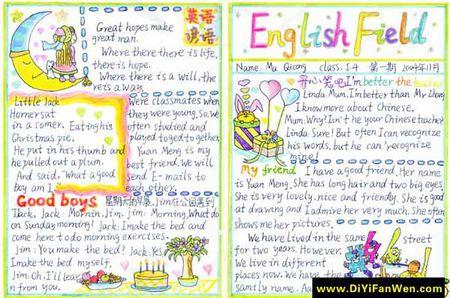 Great hopes make
great man.
Where there is life,
there is hope.
Where there is a will, the
re is a way.
英语
谚语
Little Jack
Horner sat
in a corner. Eating his
Christmas pie.
He put in his thumb and
he pulled out a plum.
And said, "What a good
boy am I
were classmates when
they were young. So, we
often studied and
played together.
Yuan Meng is my
best friend. We will
send E-mails to
each other.
Good boys
星期天的早晨, Jim在公园里
Jack. Jack: Mornin, Jim. Jim: Morning. What do
on Sunday morning? Jack: I make the bed and
come here to do morning exercises.
Jim: You make the bed? Jack: Yes.
I make the bed myself.
Jim: Oh. I'll lear
n from you.
English Field
Name: Mu Qicong class: 5.4 第一期 2004年11月
开心笑吧 I'm better the teacher
Linda: Mum, I'm better than Mr Zhong
I know more about Chinese.
Mum: Why? Isn't he your Chinese teacher?
Linda: Sure! But often I can recognize
his words, but he can't recognize
mine!
My friend
I have a good friend. Her name
is Yuan Meng. She has long hair and two big eyes
She is very lovely, nice and friendly. She is good
at drawing and I admire her very much. She often
shows me her pictures.
We have lived in the same street
for two years. However, we
live in different
places now. We have the
same
www.DiYiFanWen.com